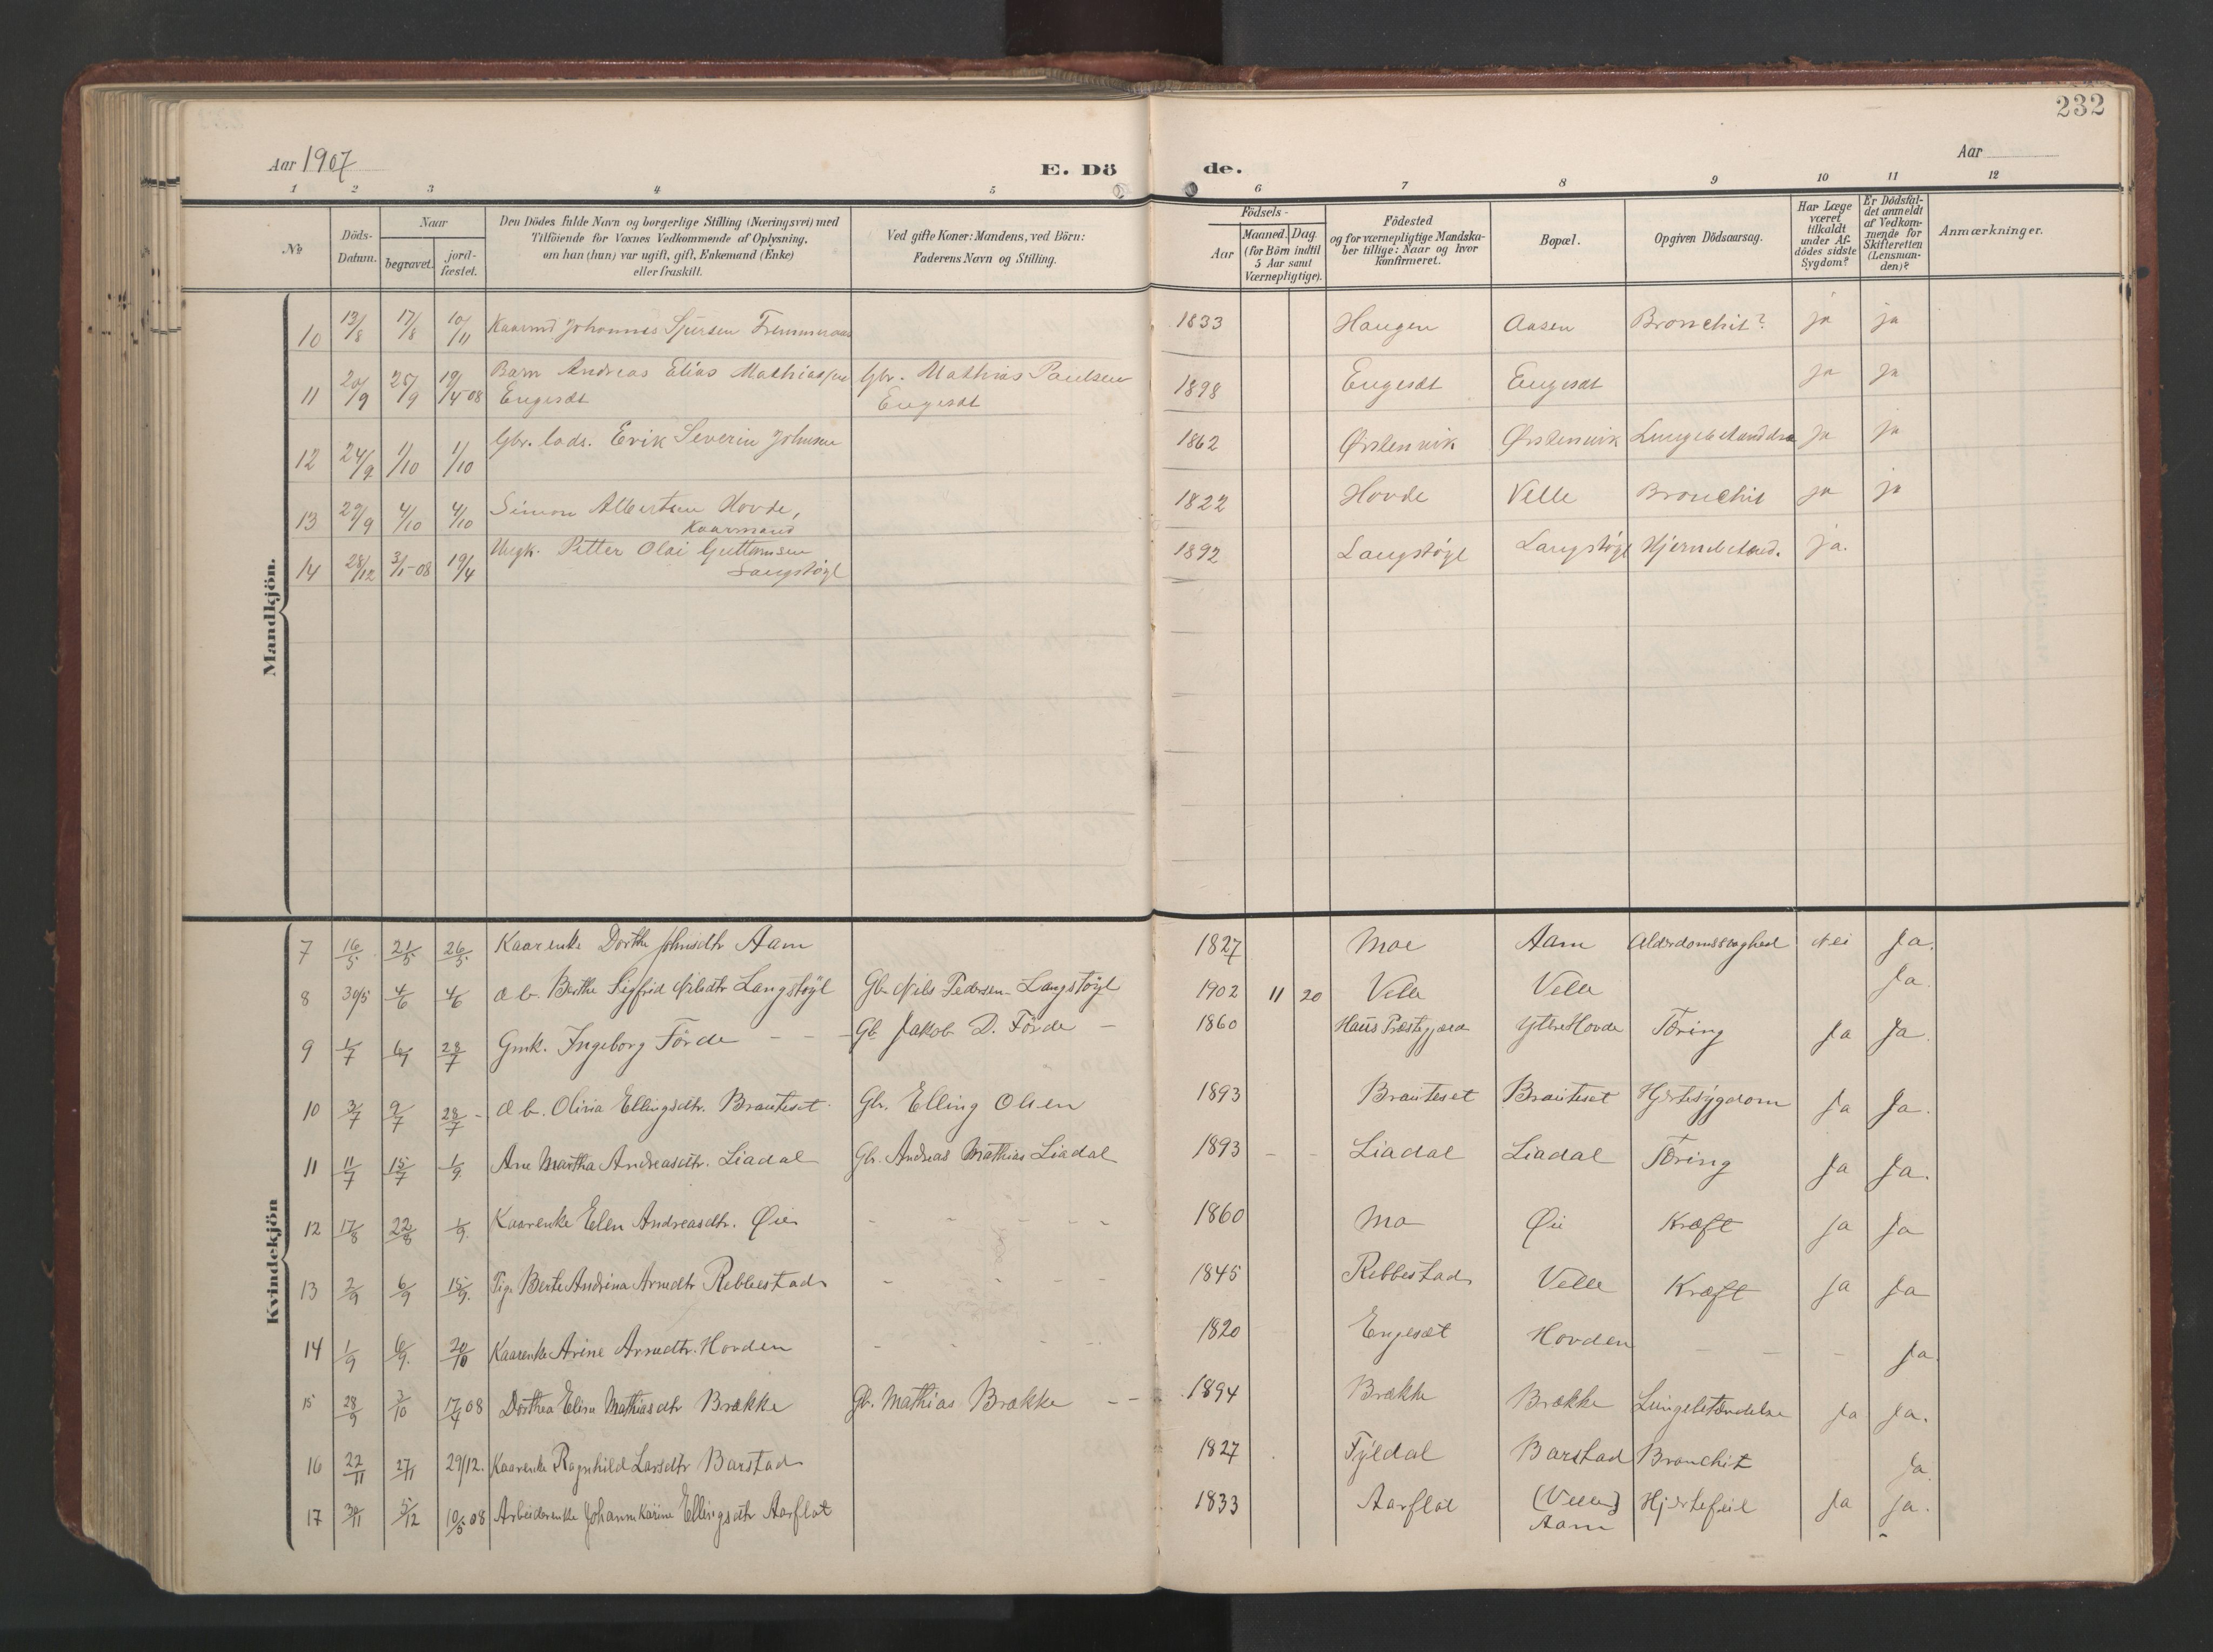 232
Aar 1907
E. Dö de.
Aar
1 2 3 4 5 6 7 8 9 10 11 12
No
Döds-
Datum.
Naar
begravet.
jord-
fæstet.
Den Dödes fulde Navn og borgerlige Stilling (Næringsvei) med
Tilföiende for Voxnes Vedkommende af Oplysning,
om han (hun) var ugift, gift, Enkemand (Enke)
eller fraskilt.
Ved gifte Koner: Mandens, ved Börn:
Faderens Navn og Stilling.
Födsels-
Aar
Maaned. Dag
(for Börn indtil
5 Aar samt
Værnepligtige).
Födested
og for værnepligtige Mandska-
ber tillige: Naar og hvor
konfirmeret.
Bopæl.
Opgiven Dödsaarsag.
Har Læge
været
tilkaldt
under Af-
dödes sidste
Sygdom?
Er Dödsfal-
det anmeldt
af Vedkom-
mende for
Skifteretten
(Lensman-
den)?
Anmærkninger.
Mandkjön.
10 13/8 17/8 10/11 Kaarmd Johannes Sjursen 1833 Haugen Aasen Bronchit? ja ja
11 20/9 25/9 19/4 08 Barn Andreas Elias Mathiassen Gbr. Mathias Paulsen 1898 Engesæt Engesæt ja ja
Engesæt Engesæt
12 24/9 1/10 1/10 Gbr. Erik Severin Johnsen 1862 Ørstenvik Ørstenvik Lungebetændelse ja ja
13 29/9 4/10 4/10 Simon Albertsen Hovde, 1822 Hovde Velle Bronchit ja ja
Kaarmand
14 28/12 3/1-08 19/4 Ungk. Petter Olai Guttormsen 1892 Langstøyl Langstøyl Hjernebetænd. ja.
Langstøyl
Kvindekjön
7 16/5 21/5 26/5 Kaarenke Dorthe Johnsdtr Aam 1827 Moe Aam Alderdomssvaghed Nei Ja.
8 30/5 4/6 4/6 d b. Berthe Sigfrid Nilsdtr Langstöyl Gb. Nils Pedersen Langstöyl 1902 11 20 Velle Velle Ja.
9 1/7 6/7 28/7 Gmk. Ingeborg Förde - - - Gb. Jakob D. Förde - 1860 Haus Præstegjæld Ytre Hovde Tæring Ja Ja.
10 3/7 9/7 28/7 - d b. Olivia Ellingsdtr. Brauteset Gbr. Elling Olsen 1893 Brauteset Brauteset Hjertesygdom Ja Ja.
11 11/7 15/7 1/9 Ane Martha Andreasdtr. Liadal Gbr. Andreas Mathias Liadal 1893 - - Liadal Liadal Tæring Ja Ja.
12 17/8 22/8 1/9. Kaarenke Elen Andreasdtr. Øie - - - - - 1860 Mo Øie Kræft Ja Ja
13 2/9 6/9 15/9. Pige Berte Andrina Arnedtr Rebbestad - - - - 1845 Rebbestad Velle Kræft Ja Ja
14 1/9 6/9. 20/10 Kaarenke Arine Arnedtr. Hovden - - - - 1820 Engesæt Hovden - - - Ja.
15 28/9 3/10 17/4 08 Dorthea Elise Mathiasdtr Brække Gb. Mathias Brække - - 1894 Brække Brække Lungebetændelse Ja Ja.
16 22/11 27/11 29/12. Kaarenke Ragnhild Larsdtr Barstad 1827 Fyldal Barstad Bronchit Ja.
17 30/11 5/12 10/5 08 Arbeiderenke Johanne Karine Ellingsdtr Aarflot 1833 Aarflot (Velle) Hjertefeil Ja Ja.
Aam